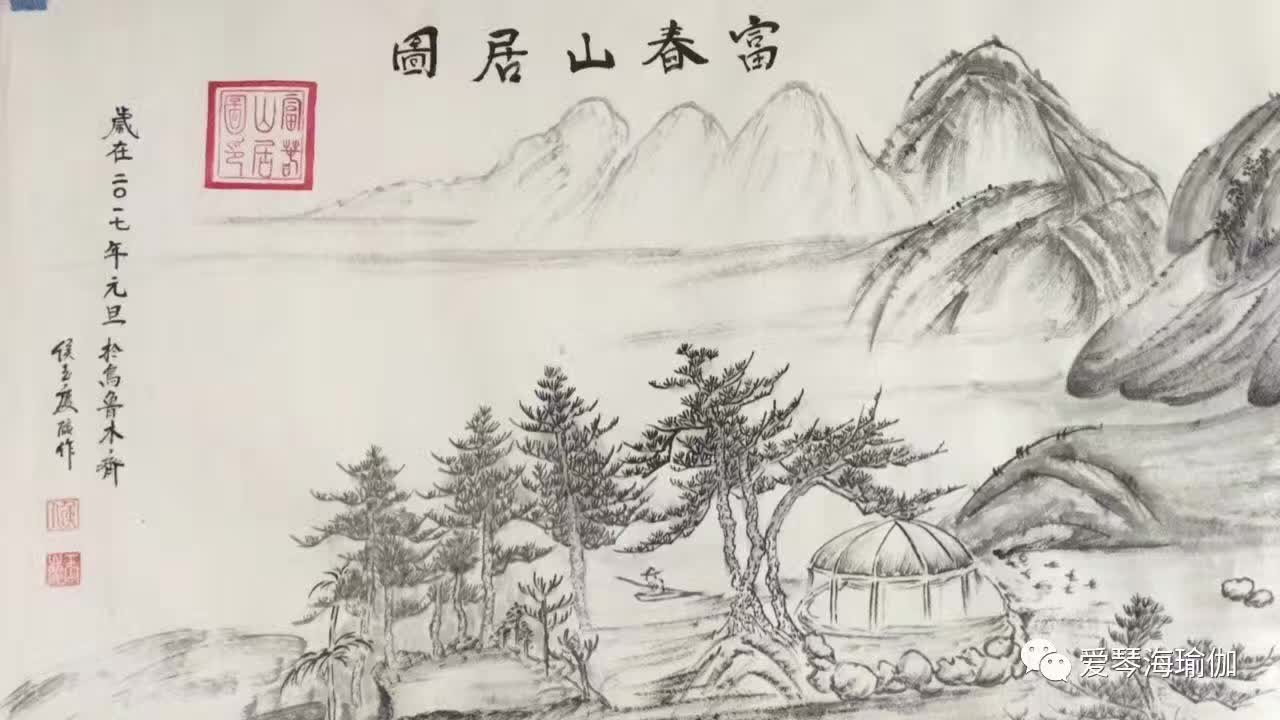 富春山居圖
富春山居圖印
歲在二〇一七年元旦於烏魯木齊
作
爱琴海瑜伽